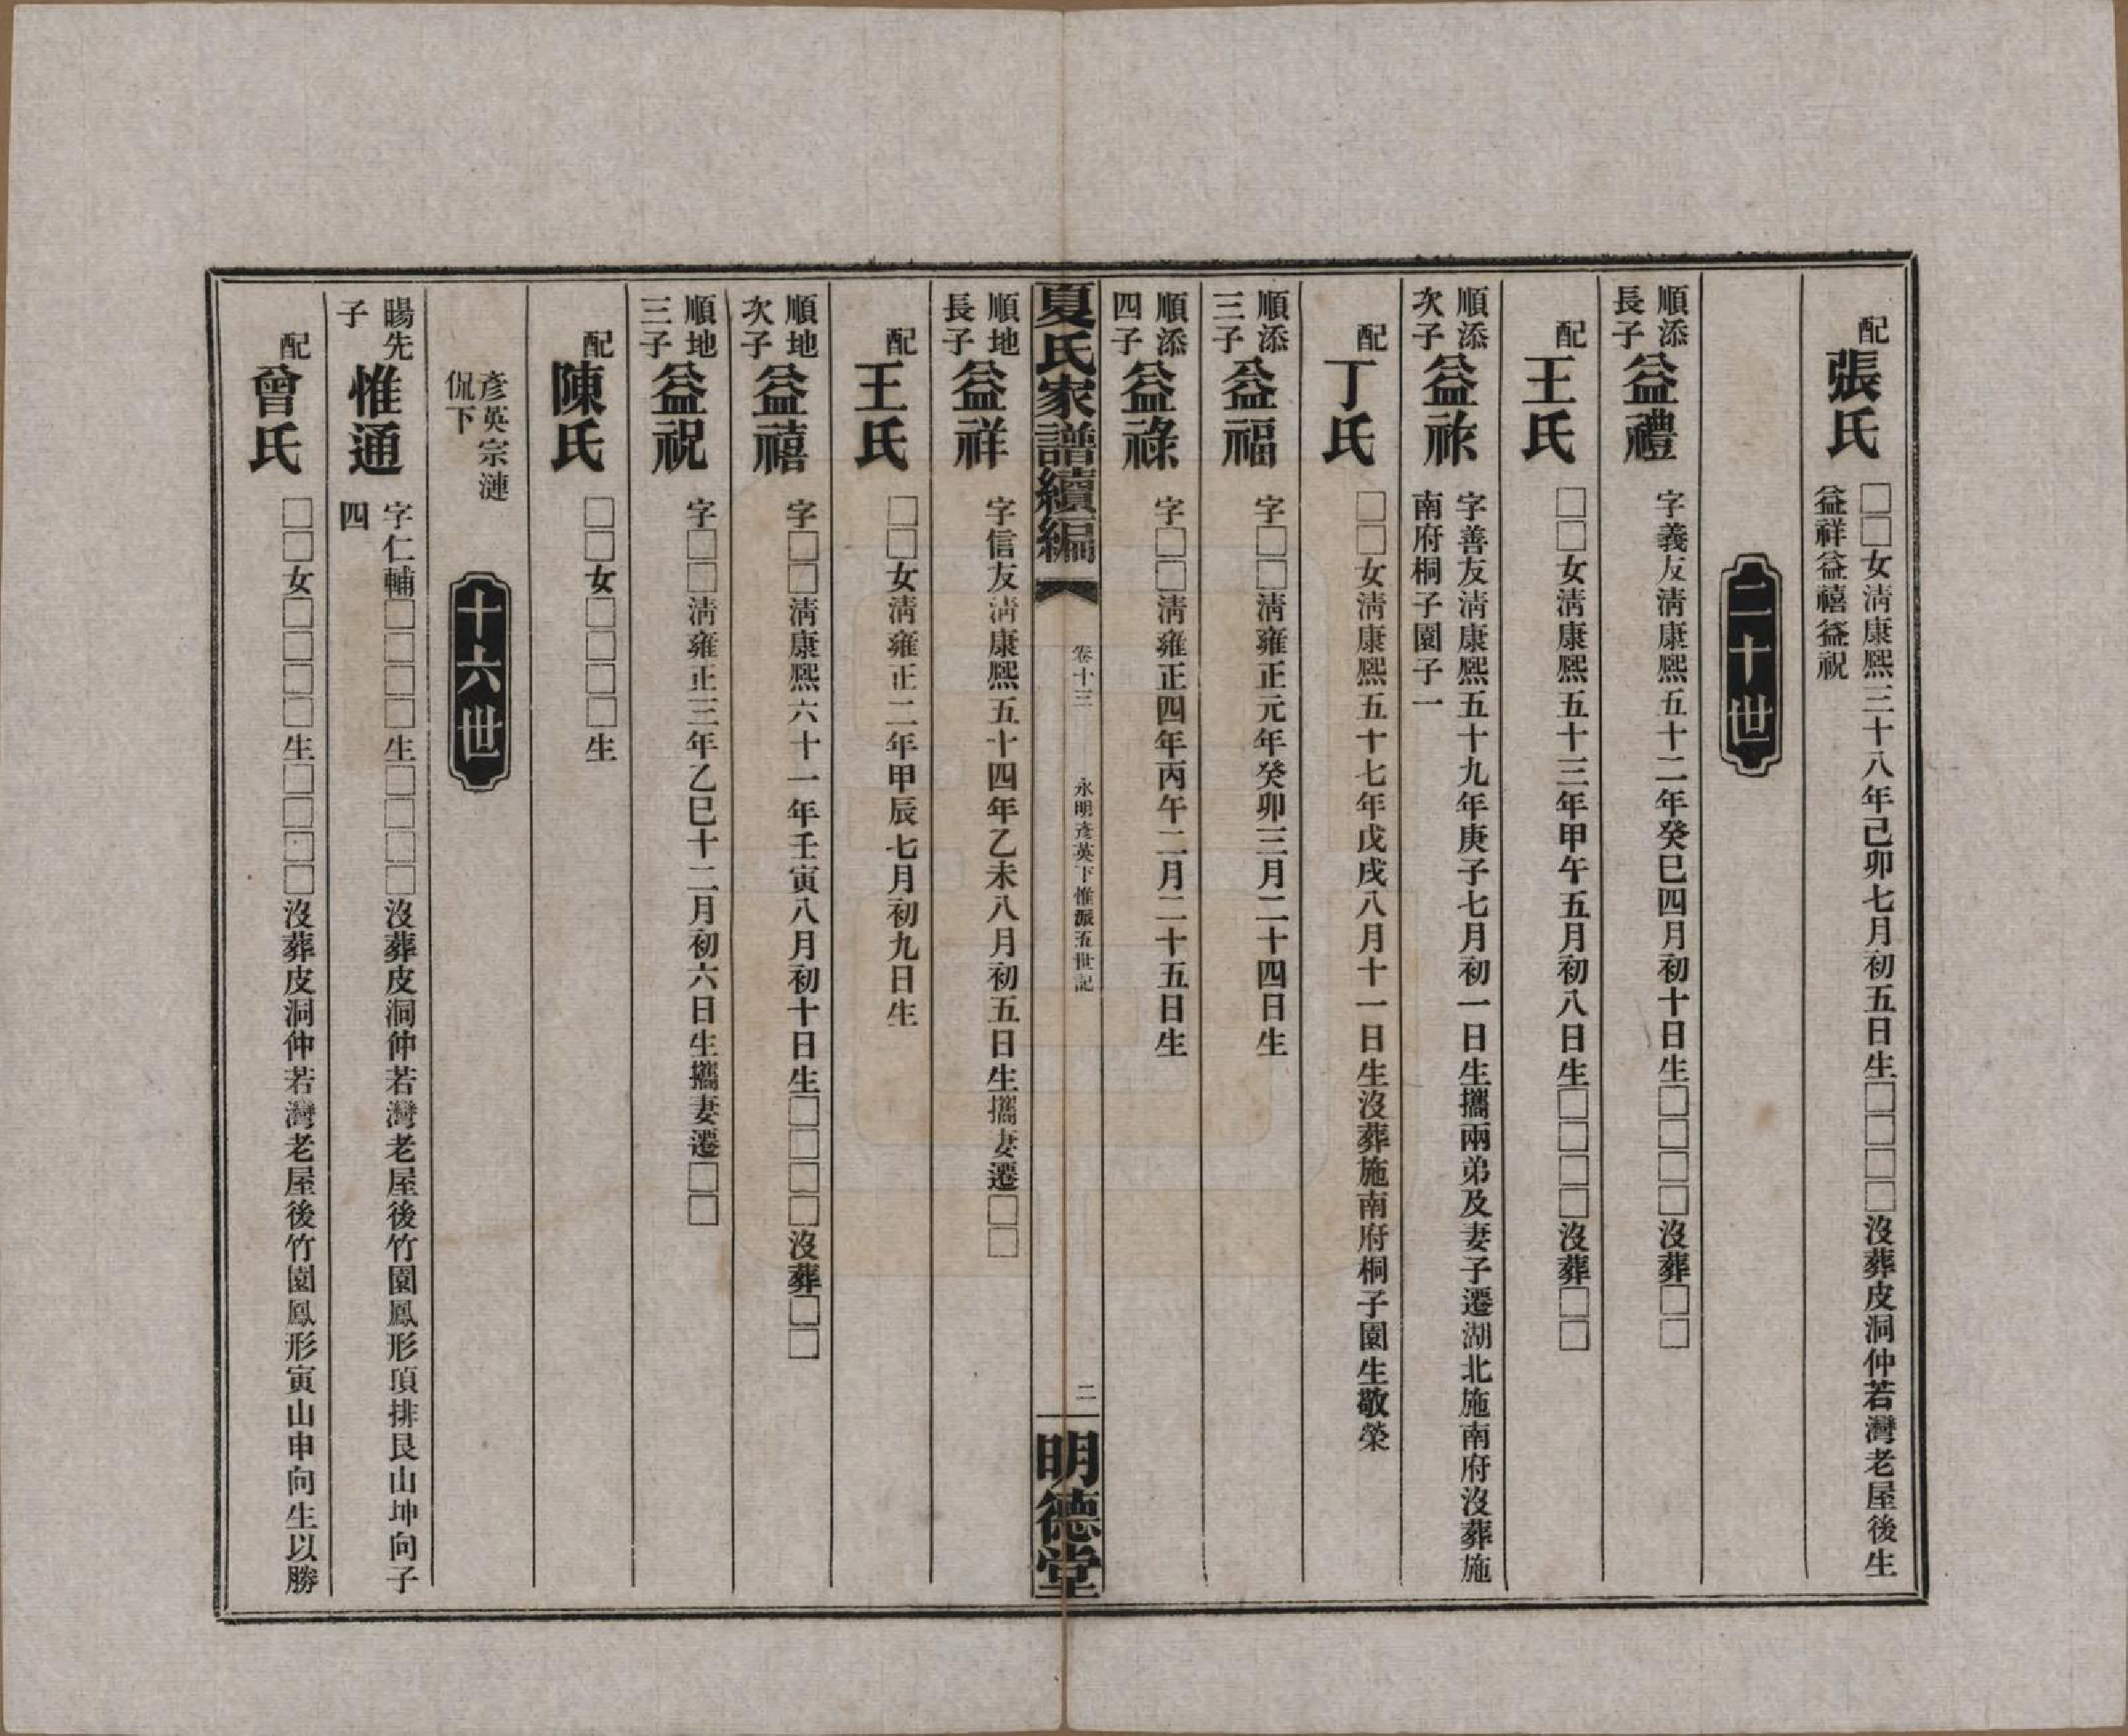 配張氏 □□女淸康熙三十八年己卯七月初五日生□□□□沒葬皮洞仲若灣老屋後生
益祥益禧益祝
二十世
順添長子益禮 字義友淸康熙五十二年癸巳四月初十日生□□□□沒葬□□
配王氏 □□女淸康熙五十三年甲午五月初八日生□□□□沒葬□□
順添次子益祚 字善友淸康熙五十九年庚子七月初一日生攜兩弟及妻子遷湖北施南府沒葬施
南府桐子園子一
配丁氏 □□女淸康熙五十七年戊戌八月十一日生沒葬施南府桐子園生敬榮
順添三子益福 字□□淸雍正元年癸卯三月二十四日生
順添四子益祿 字□□淸雍正四年丙午二月二十五日生
夏氏家譜續編 卷十三 永明彥英下惟派五世記 二 明德堂
順地長子益祥 字信友淸康熙五十四年乙未八月初五日生攜妻遷□□
配王氏 □□女淸雍正二年甲辰七月初九日生
順地次子益禧 字□□淸康熙六十一年壬寅八月初十日生□□□□沒葬□□
順地三子益祝 字□□淸雍正三年乙巳十二月初六日生攜妻遷□□
配陳氏 □□女□□□□生
彥英宗漣
侃下
十六世
暘先子惟通 字仁輔□□□□生□□□□沒葬皮洞仲若灣老屋後竹園鳳形頂排艮山坤向子
四
配曾氏 □□女□□□□生□□□□沒葬皮洞仲若灣老屋後竹園鳳形寅山申向生以勝